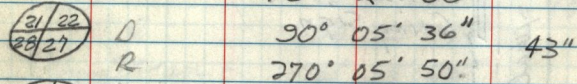 21 22
28 27
D 90° 05' 36"
43"
R 270° 05' 50"